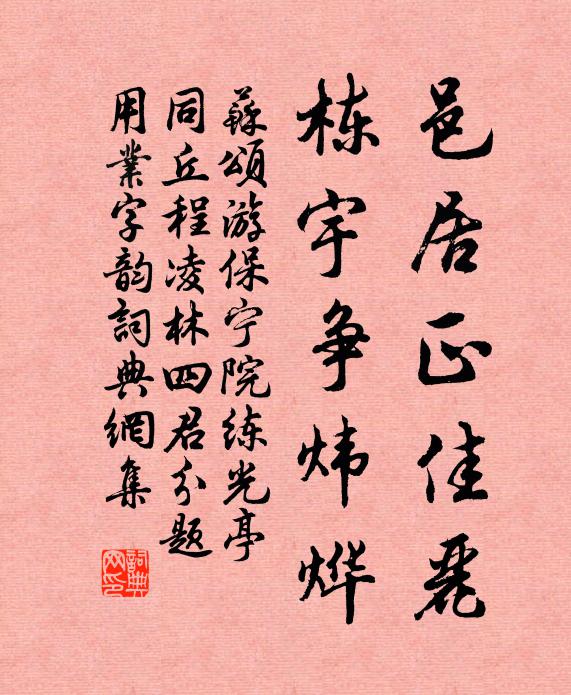 邑居正佳麗
栋宇争炜烨
蘇頌游保宁院练光亭
同丘程凌林四君分题
用業字韵詞典網集
詞典網印